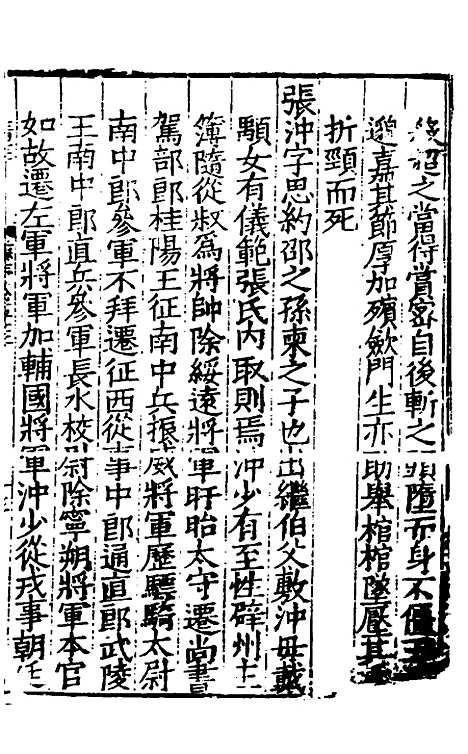 超之當得賞密自後斬之頭墮而身不僵玉
邈嘉其節厚加殯斂門生亦助舉棺棺墜壓其
折頸而死
張沖字思約邵之孫柬之子也出繼伯父敷沖母戴
顒女有儀範張氏內取則焉沖少有至性辟州主
簿隨從叔為將帥除綏遠將軍盱眙太守遷尚書
駕部郎桂陽王征南中兵振威將軍歷驃騎太尉
南中郎參軍不拜遷征西從事中郎通直郎武陵
王南中郎直兵參軍長水校尉除寧朔將軍本官
如故遷左軍將軍加輔國將軍沖少從戎事朝廷